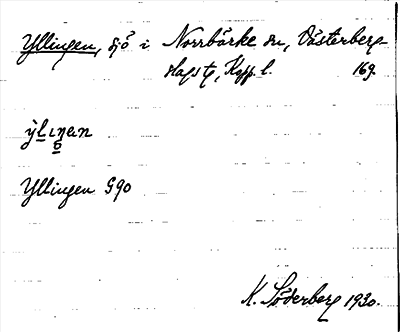 Yllingen, sjö i Norrbärke sn, Västerberg-
slags tg, Kopp. l. 169.
ỳlıŋen
Yllingen G90
K. Söderberg 1930.